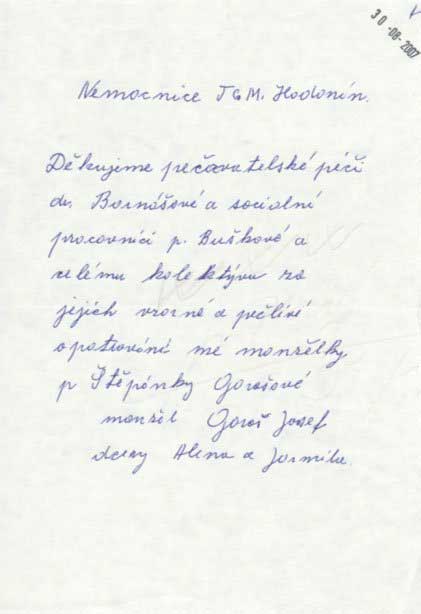 30-08-2007
Nemocnice TGM. Hodonín.
Děkujeme pečovatelské péči
dr. Bornášové a socialní
pracovnici p. Buškové a
celému kolektývu za
jejich vzorné a pečlivé
opatrování mé manželky
p Štěpánky Gorošové
manžel Goroš Josef
dcery Alena a Jarmila.